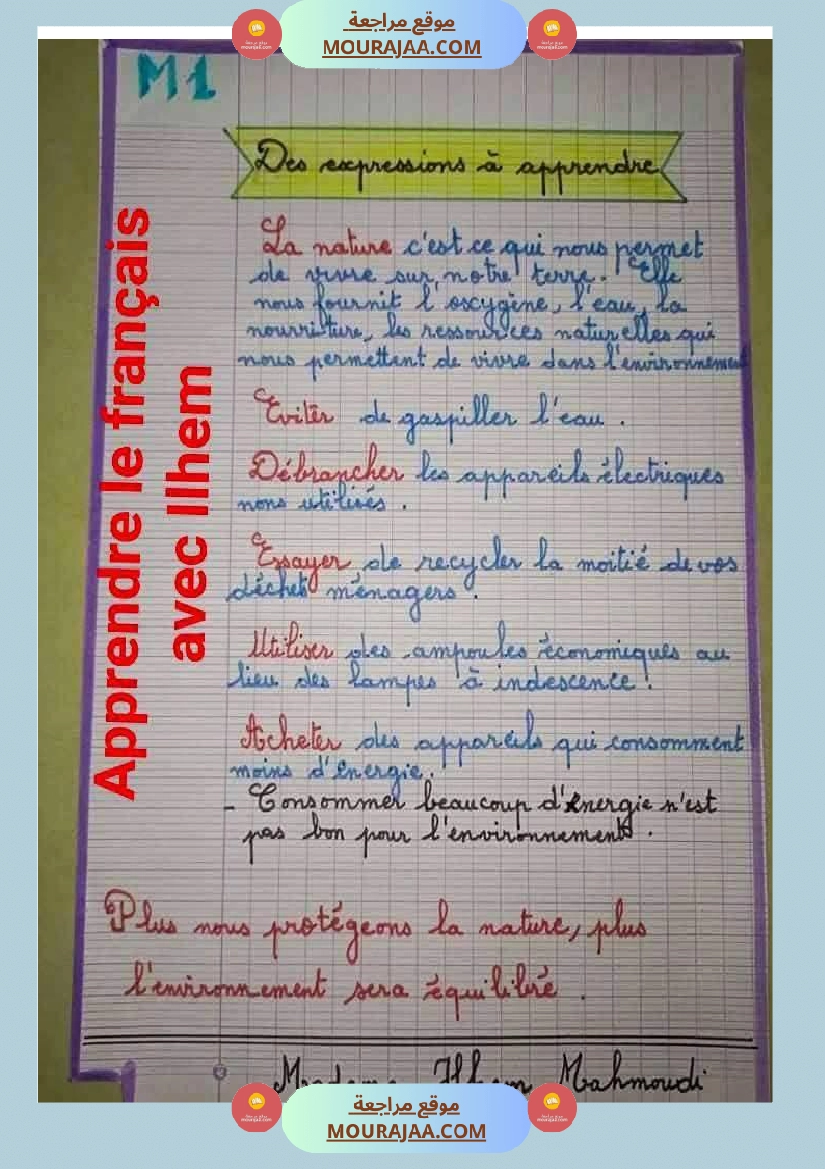 موقع مراجعة
MOURAJAA.COM
M1
Des expressions à apprendre
Apprendre le français
avec Ilhem
La nature c'est ce qui nous permet
de vivre sur notre terre. Elle
nous fournit l'oscygène, l'eau, la
nourriture, les ressources naturelles qui
nous permettent de vivre dans l'environnement
Eviter de gaspiller l'eau .
Débrancher les appareils électriques
nons utilisés .
Essayer de recycler la moitié de vos
déchets ménagers .
Utiliser des ampoules économiques au
lieu des lampes à indescence .
Acheter des appareils qui consomment
moins d'énergie.
- Consommer beaucoup d'énergie n'est
pas bon pour l'environnement .
Plus nous protégeons la nature, plus
l'environnement sera équilibré .
Madame Ilhem Mahmoudi
موقع مراجعة
MOURAJAA.COM